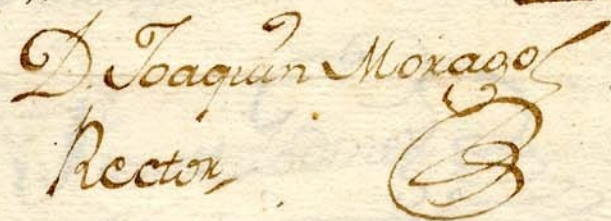 D. Joaquin Morago
Rector